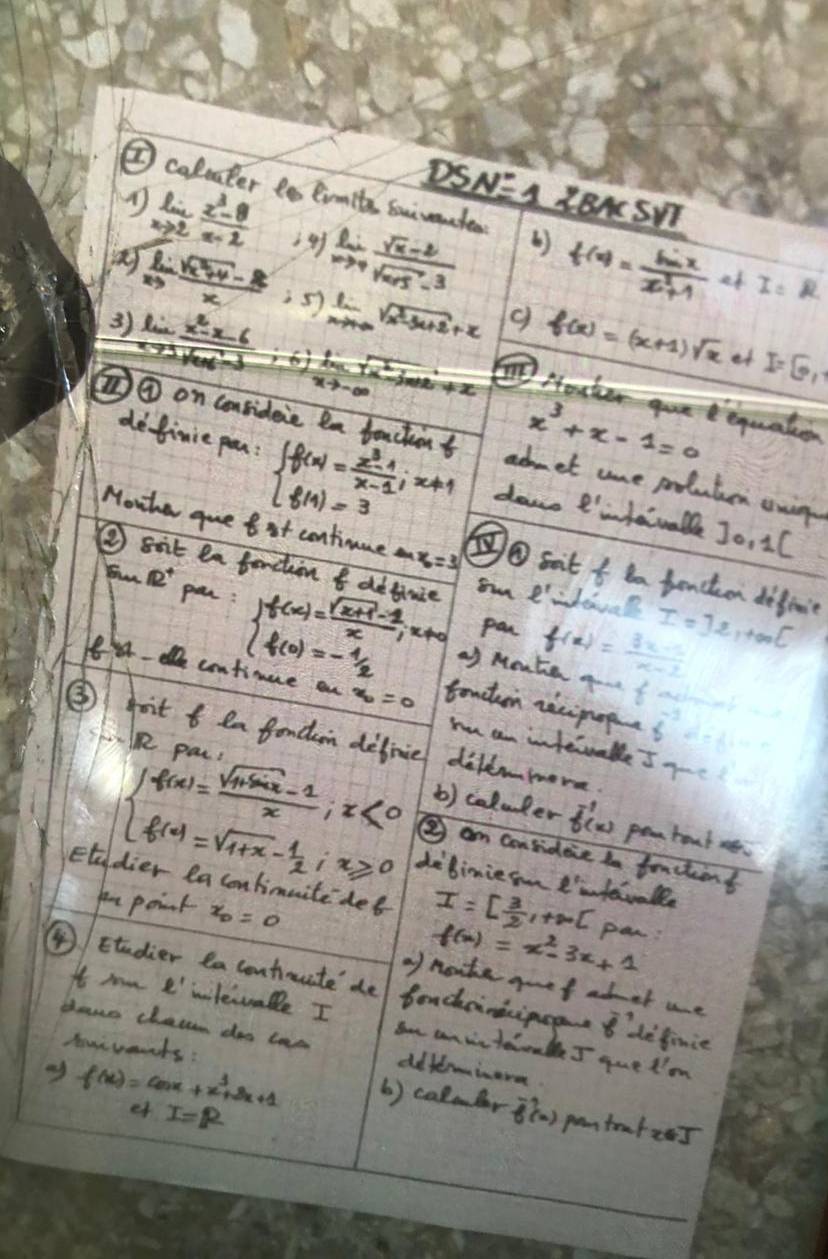 DS N°=1 2BAC SVT
I calculer les limites suivantes:
1) lim x→2 (x³-8)/(x-2) ; 4) lim x→4 (√x-2)/(√(x+5)-3)
2) lim (√(x²+4)-2)/x ; 5) lim x→+∞ √(x²-3x+2)+x
3) lim x→3 (x²-x-6)/(√(x+6)-3) ; 6) lim x→-∞ √(x²-3x+2)+x
II ① on considère la fonction f
définie par: { f(x) = (x³-1)/(x-1) ; x≠1
f(1) = 3
Montrer que f est continue en x₀=3
② Soit la fonction f définie
sur ℝ⁺ par : { f(x) = (√(x+1)-1)/x ; x≠0
f(0) = -1/2
f est-elle continue en x₀=0
③ soit f la fonction définie
sur ℝ par:
{ f(x) = (√(1+sinx)-1)/x ; x<0
f(x) = √(1+x)-1/2 ; x⩾0
Etudier la continuité de f
au point x₀=0
④ Etudier la continuité de
f sur l'intervalle I
dans chacun des cas
suivants:
a) f(x) = cosx + x³+2x+1
et I=ℝ
b) f(x) = sinx/(x²+1) et I=ℝ
c) f(x) = (x+1)√x et I=[0,+
III Montrer que l'équation
x³+x-1=0
admet une solution unique
dans l'intervalle ]0,1[
IV ① Soit f la fonction définie
sur l'intervalle I=]2,+∞[
par f(x) =
a) Montrer que f admet une
fonction réciproque f⁻¹ définie
sur un intervalle J que l'on
déterminera.
b) calculer f⁻¹(x) pour tout
② on considère la fonction f
définie sur l'intervalle
I=[3/2,+∞[ par:
f(x) = x²-3x+1
a) Montre que f admet une
fonction réciproque f⁻¹ définie
sur un intervalle J que l'on
déterminera.
b) calculer f⁻¹(x) pour tout x∈J